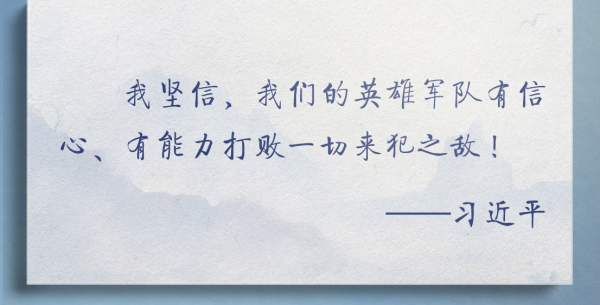 我坚信，我们的英雄军队有信
心、有能力打败一切来犯之敌！
——习近平